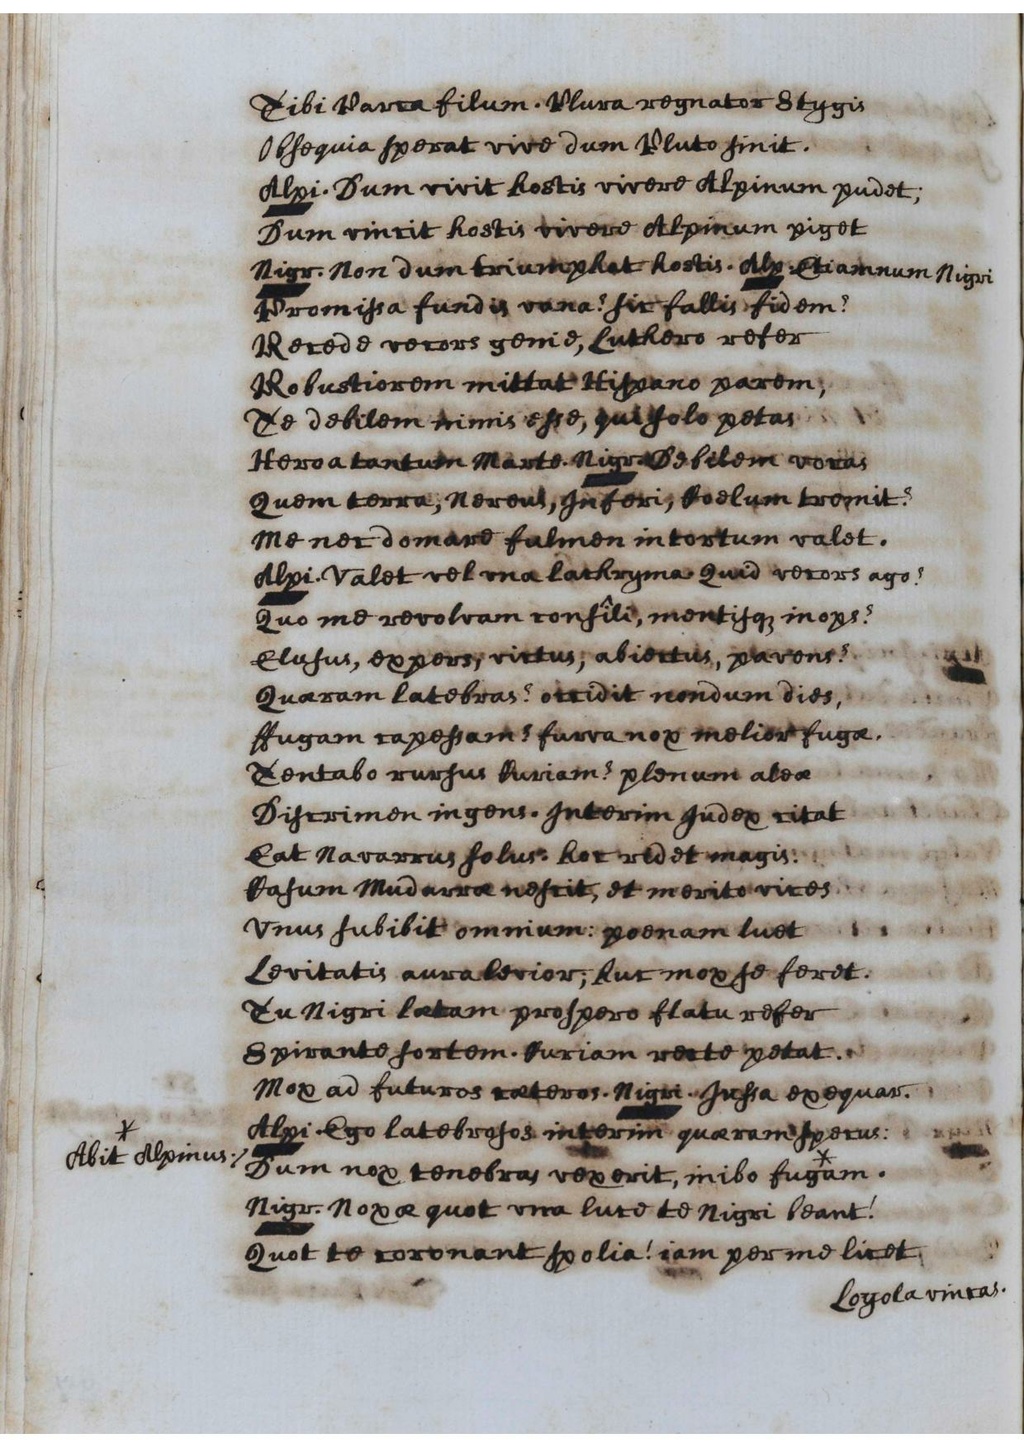 Tibi Parca filum. Plura regnator Stygis
Obsequia sperat vive dum Pluto sinit.
Alpi. Dum vivit hostis vivere Alpinum pudet;
Dum vincit hostis vivere Alpinum piget
Nigr. Non dum triumphat hostis. Alp. Etiamnum Nigri
Promissa fundis vana? sic fallis fidem?
Recede vecors genie, Luthero refer
Robustiorem mittat Hispano parem,
Te debilem nimis esse, qui solo petas
Heroa tantum Marte. Nigr. Debilem vocas
Quem terra, Nereus, Inferi, Koelum tremit?
Me nec domare fulmen intortum valet.
Alpi. Valet vel vna lachryma. Quid vecors ago?
Quo me revolvam consîli, mentisq; inops?
Elusus, expers, victus, abiectus, pavens?
Quæram latebras? occidit nondum dies,
ffugam capessam? furva nox melior fugæ.
Tentabo rursus Kuriam? plenum aleæ
Discrimen ingens. Interim Judex citat
Eat Navarrus solus. hoc ridet magis.
Kasum Mudarræ nescit, et merito vices
Vnus subibit omnium: poenam luet
Levitatis aura levior; huc mox se feret.
Tu Nigri lætam prospero flatu refer
Spirante sortem. Kuriam recte petat.
Mox ad futuros cæteros. Nigri. Jussa exequar.
Alpi. Ego latebrosos interim quæram specus:
*
Abit Alpinus./
Dum nox tenebras vexerit, inibo fugam.*
Nigr. Noxæ quot vna luce te Nigri beant!
Quot te coronant spolia! iam per me licet
Loyola vincas.